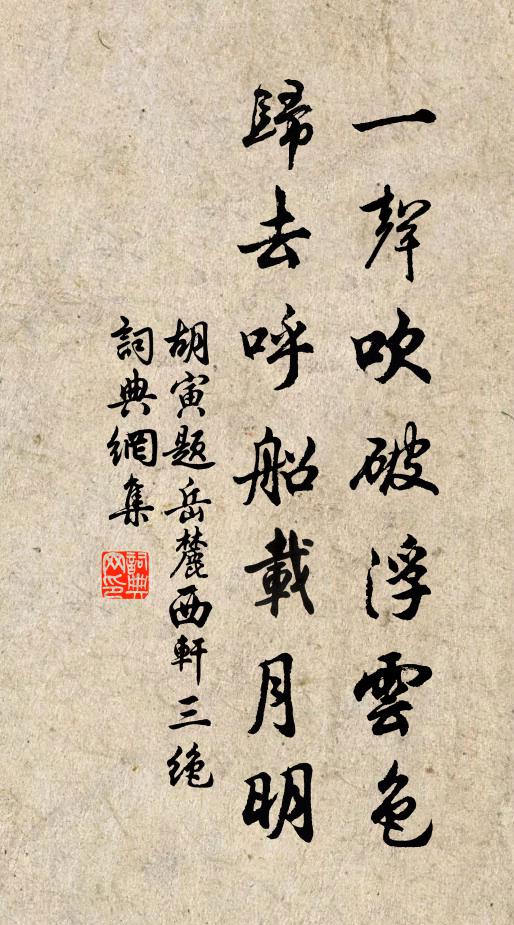 一聲吹破浮雲色
歸去呼船載月明
胡寅題岳麓西軒三絶
詞典網集
詞典網印